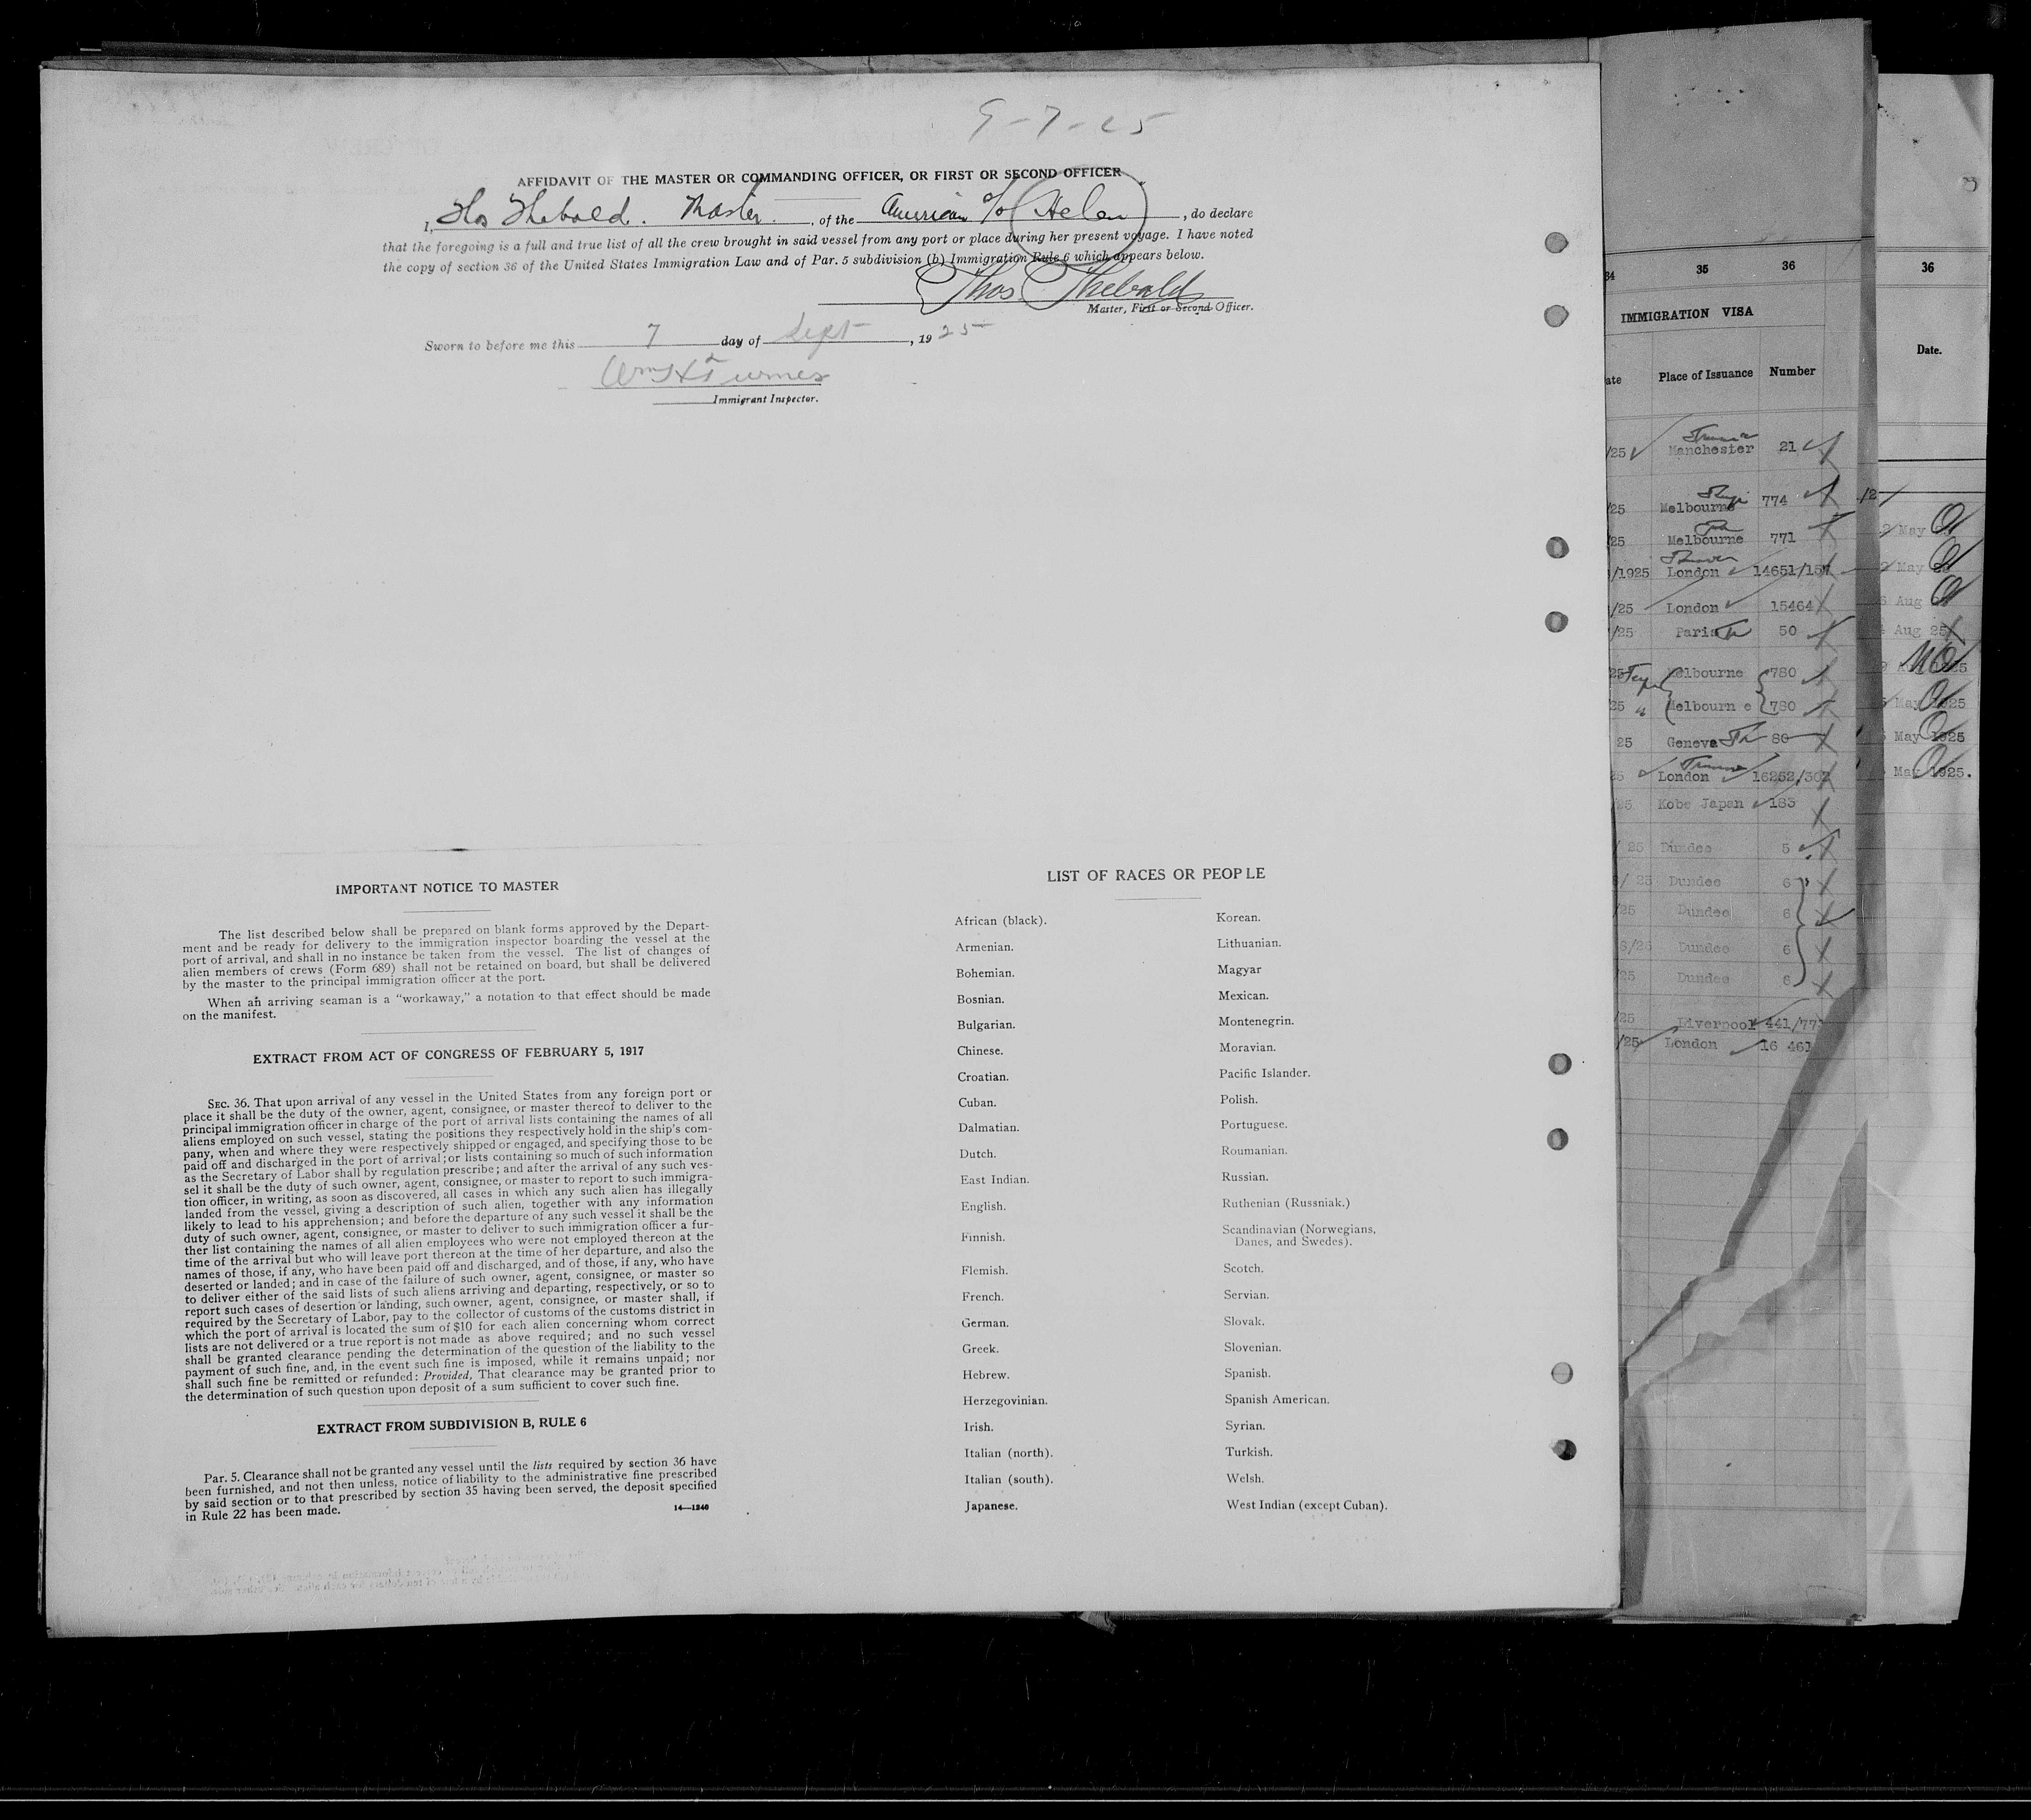 9-7-25
AFFIDAVIT OF THE MASTER OR COMMANDING OFFICER, OR FIRST OR SECOND OFFICER
I, Thos Thebald. Master. , of the American S/S Helen , do declare
that the foregoing is a full and true list of all the crew brought in said vessel from any port or place during her present voyage. I have noted
the copy of section 36 of the United States Immigration Law and of Par. 5 subdivision (b) Immigration Rule 6 which appears below.
Thos Thebald
Master, First or Second Officer.
Sworn to before me this 7 day of Sept , 1925
Immigrant Inspector.
IMPORTANT NOTICE TO MASTER
The list described below shall be prepared on blank forms approved by the Depart-
ment and be ready for delivery to the immigration inspector boarding the vessel at the
port of arrival, and shall in no instance be taken from the vessel. The list of changes of
alien members of crews (Form 689) shall not be retained on board, but shall be delivered
by the master to the principal immigration officer at the port.
When an arriving seaman is a "workaway," a notation to that effect should be made
on the manifest.
EXTRACT FROM ACT OF CONGRESS OF FEBRUARY 5, 1917
SEC. 36. That upon arrival of any vessel in the United States from any foreign port or
place it shall be the duty of the owner, agent, consignee, or master thereof to deliver to the
principal immigration officer in charge of the port of arrival lists containing the names of all
aliens employed on such vessel, stating the positions they respectively hold in the ship's com-
pany, when and where they were respectively shipped or engaged, and specifying those to be
paid off and discharged in the port of arrival; or lists containing so much of such information
as the Secretary of Labor shall by regulation prescribe; and after the arrival of any such ves-
sel it shall be the duty of such owner, agent, consignee, or master to report to such immigra-
tion officer, in writing, as soon as discovered, all cases in which any such alien has illegally
landed from the vessel, giving a description of such alien, together with any information
likely to lead to his apprehension; and before the departure of any such vessel it shall be the
duty of such owner, agent, consignee, or master to deliver to such immigration officer a fur-
ther list containing the names of all alien employees who were not employed thereon at the
time of the arrival but who will leave port thereon at the time of her departure, and also the
names of those, if any, who have been paid off and discharged, and of those, if any, who have
deserted or landed; and in case of the failure of such owner, agent, consignee, or master so
to deliver either of the said lists of such aliens arriving and departing, respectively, or so to
report such cases of desertion or landing, such owner, agent, consignee, or master shall, if
required by the Secretary of Labor, pay to the collector of customs of the customs district in
which the port of arrival is located the sum of $10 for each alien concerning whom correct
lists are not delivered or a true report is not made as above required; and no such vessel
shall be granted clearance pending the determination of the question of the liability to the
payment of such fine, and, in the event such fine is imposed, while it remains unpaid; nor
shall such fine be remitted or refunded: Provided, That clearance may be granted prior to
the determination of such question upon deposit of a sum sufficient to cover such fine.
EXTRACT FROM SUBDIVISION B, RULE 6
Par. 5. Clearance shall not be granted any vessel until the lists required by section 36 have
been furnished, and not then unless, notice of liability to the administrative fine prescribed
by said section or to that prescribed by section 35 having been served, the deposit specified
in Rule 22 has been made.
14—1240
LIST OF RACES OR PEOPLE
African (black).
Armenian.
Bohemian.
Bosnian.
Bulgarian.
Chinese.
Croatian.
Cuban.
Dalmatian.
Dutch.
East Indian.
English.
Finnish.
Flemish.
French.
German.
Greek.
Hebrew.
Herzegovinian.
Irish.
Italian (north).
Italian (south).
Japanese.
Korean.
Lithuanian.
Magyar
Mexican.
Montenegrin.
Moravian.
Pacific Islander.
Polish.
Portuguese.
Roumanian.
Russian.
Ruthenian (Russniak.)
Scandinavian (Norwegians,
Danes, and Swedes).
Scotch.
Servian.
Slovak.
Slovenian.
Spanish.
Spanish American.
Syrian.
Turkish.
Welsh.
West Indian (except Cuban).
34 35 36
IMMIGRATION VISA
ate Place of Issuance Number
/25 Manchester 21
/25 Melbourne 774
/25 Melbourne 771
/1925 London 14651/157
/25 London 15464
/25 Paris 50
25 Melbourne 780
25 Melbourn e 780
25 Geneva 80
25 London 16252/302
25 Kobe Japan 183
/ 25 Dundee 5
/ 25 Dundee 6
/25 Dundee 6
6/25 Dundee 6
/25 Dundee 6
/25 Liverpool 441/77
/25 London 16 461
36
Date.
May
May
Aug
Aug 25
1925
May 1925
May 1925
May 1925.